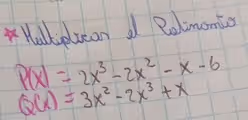 * Multiplicar el Polinomio
P(x) = 2x³ - 2x² - x - 6
Q(x) = 3x² - 2x³ + x